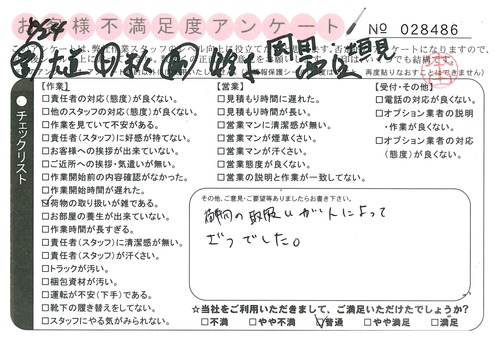 お客様不満足度アンケート
No 028486
チェックリスト
【作業】
□責任者の対応(態度)が良くない。
□他のスタッフの対応(態度)が良くない。
□作業を見ていて不安がある。
□責任者(スタッフ)に好感が持てない。
□お客様への挨拶が出来ていない。
□ご近所への挨拶・気遣いが無い。
□作業開始前の内容確認がなかった。
□作業開始時間が遅れた。
☑荷物の取り扱いが雑である。
□お部屋の養生が出来ていない。
□作業時間が長すぎる。
□責任者(スタッフ)に清潔感が無い。
□責任者(スタッフ)が汗くさい。
□トラックが汚い。
□梱包資材が汚い。
□運転が不安(下手)である。
□靴下の履き替えをしてない。
□スタッフにやる気がみられない。
【営業】
□見積もり時間に遅れた。
□見積もり時間が長い。
□営業マンに清潔感が無い。
□営業マンが煙草くさい。
□営業マンが汗くさい。
□営業態度が良くない。
□営業の説明と作業が一致してない。
【受付・その他】
□電話の対応が良くない。
□オプション業者の説明
・作業が良くない。
□オプション業者の対応
(態度)が良くない。
その他、ご意見・ご要望等ありましたらお書き下さい。
荷物の取扱いが人によって
ざつでした。
☆当社をご利用いただきまして、ご満足いただけたでしょうか?
□不満 □やや不満 ☑普通 □やや満足 □満足